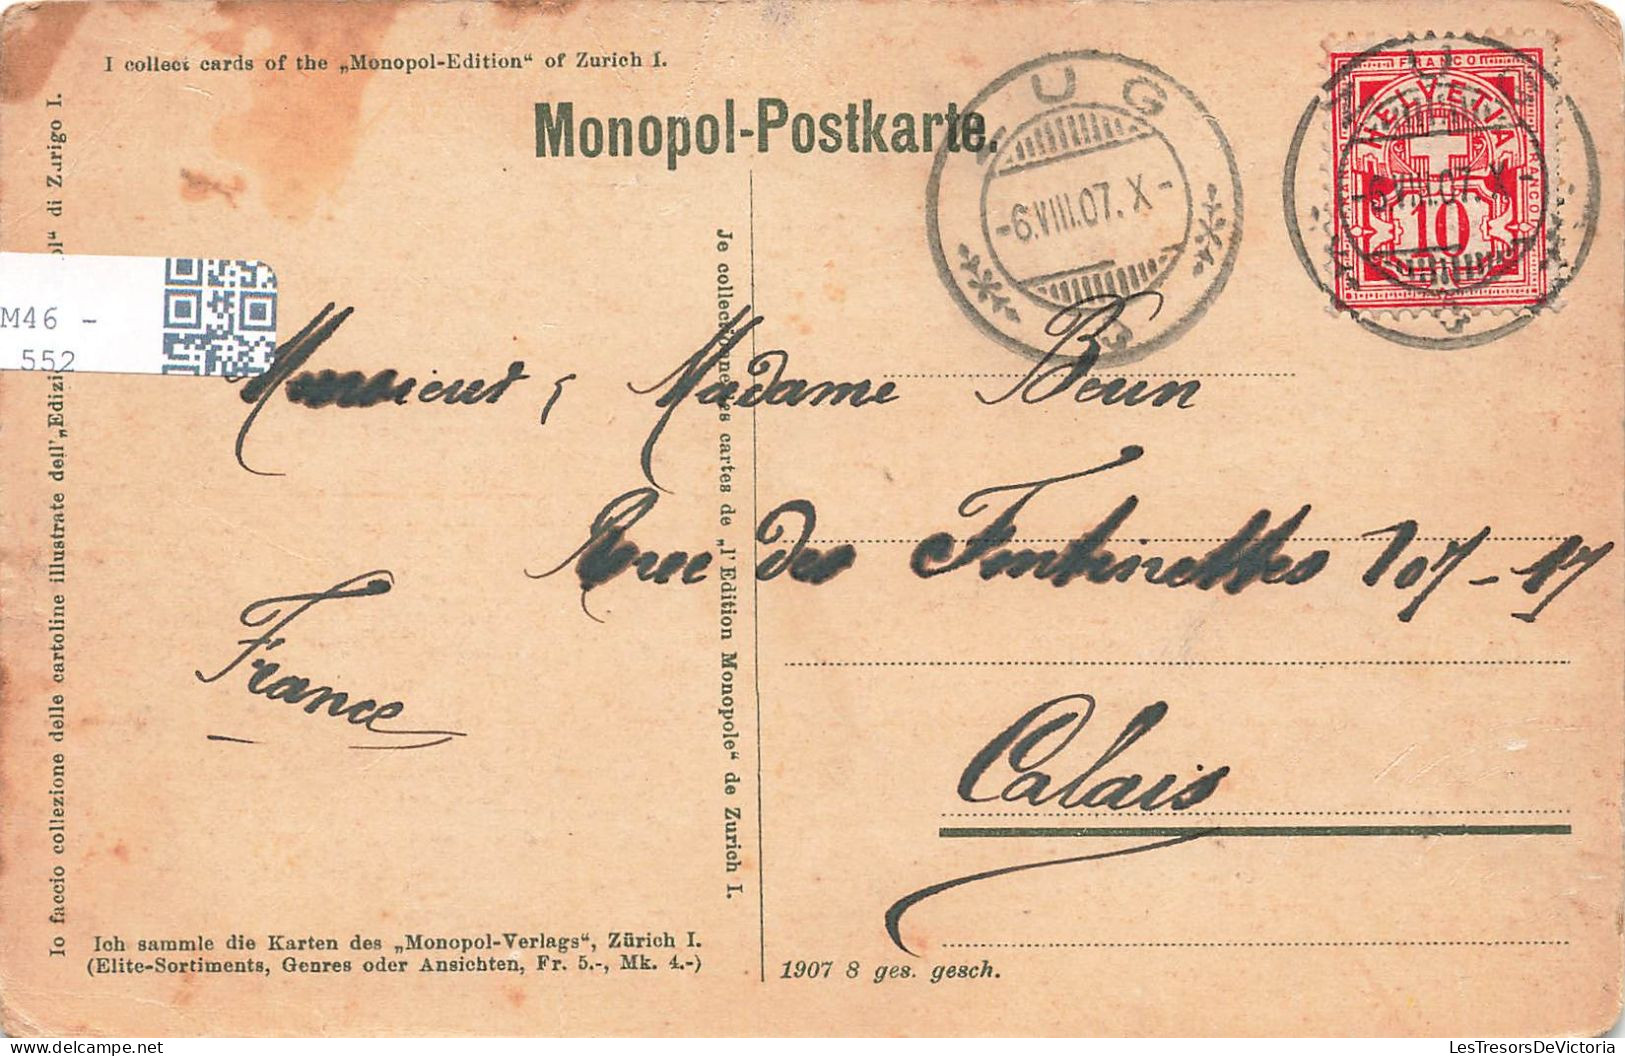 I collect cards of the „Monopol-Edition“ of Zurich I.
Monopol-Postkarte.
ZUG
-6.VIII.07.X-
FRANCO
HELVETIA
FRANCO
10
ZUG
-6.VIII.07.X-
M46 -
552
Io faccio collezione delle cartoline illustrate dell'„Edizi ol“ di Zurigo I.
Je collectionne les cartes de „l'Edition Monopole“ de Zurich I.
Monsieur, Madame Beun
Rue des Fontinettes 107-17
France
Calais
Ich sammle die Karten des „Monopol-Verlags“, Zürich I.
(Elite-Sortiments, Genres oder Ansichten, Fr. 5.-, Mk. 4.-)
1907 8 ges. gesch.
LesTresorsDeVictoria